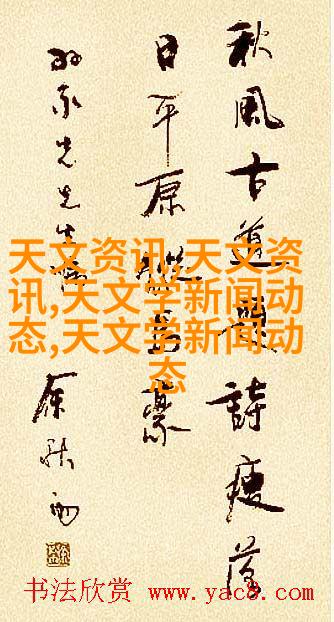 秋風古道題詩瘦落
日平原縱馬豪
先生
余秋雨
天文资讯,天文资
讯,天文学新闻动
态,天文学新闻动
态
书法欣赏 www.yac8.com